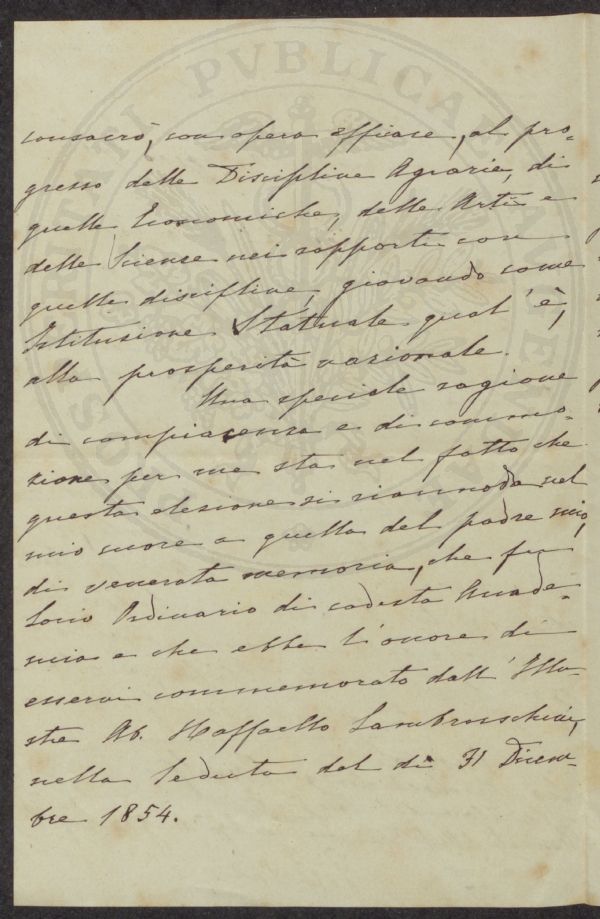 consacrò, con opera efficace, al pro-
gresso delle Discipline Agrarie, di
quelle Economiche, delle Arti e
delle Scienze nei rapporti con
quelle discipline, giovando come
Istituzione Statuale qual'è,
alla prosperità nazionale.
Una speciale ragione
di compiacenza e di commo-
zione per me sta nel fatto che
questa elezione si riannoda nel
mio cuore a quella del padre mio,
di venerata memoria, che fu
Socio Ordinario di codesta Accade-
mia e che ebbe l'onore di
esservi commemorato dall'Illu-
stre Ab. Raffaello Lambruschini,
nella Seduta del dì 31 Dicem-
bre 1854.